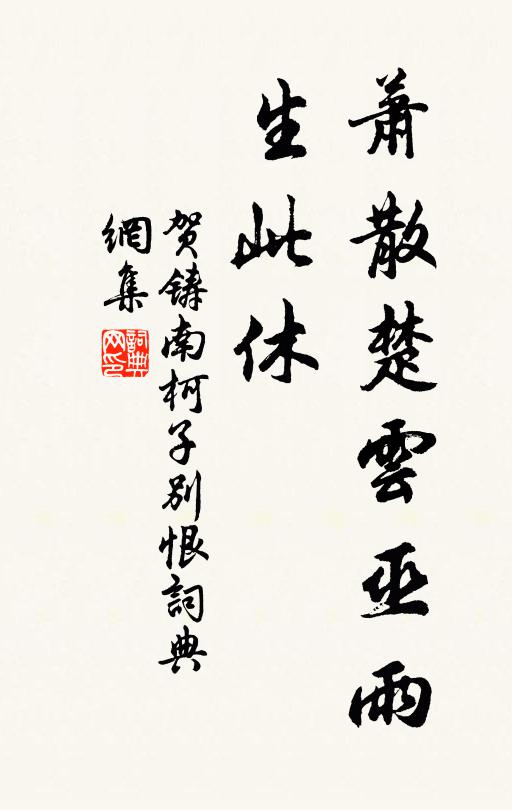 萧散楚雲巫雨
生此休
贺铸南柯子别恨詞典
網集
詞典
网印